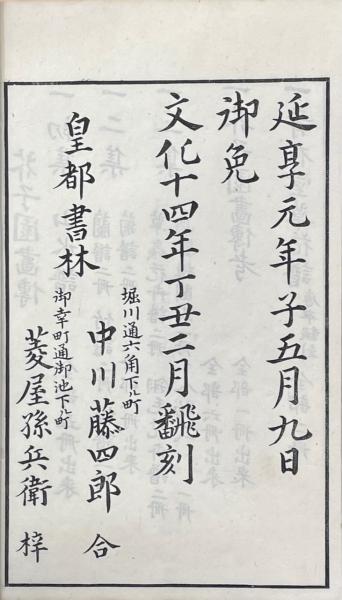 延享元年子五月九日
御免
文化十四年丁丑二月飜刻
皇都書林
堀川通六角下ル町
中川藤四郎
御幸町通御池下ル町
菱屋孫兵衛
合梓